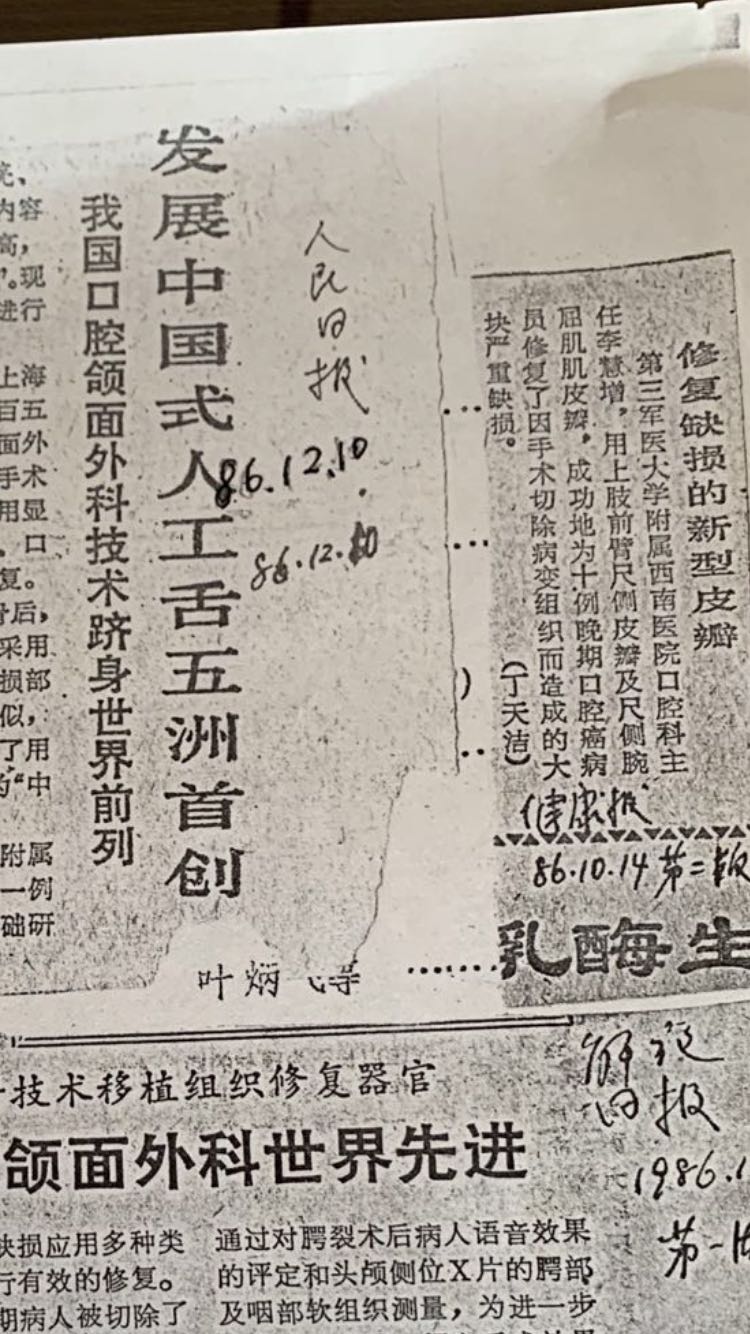 修复缺损的新型皮瓣
第三军医大学附属西南医院口腔科主
任李慧增，用上肢前臂尺侧皮瓣及尺侧腕
屈肌肌皮瓣，成功地为十例晚期口腔癌病
员修复了因手术切除病变组织而造成的大
块严重缺损。
（丁天洁）
健康报
86.10.14 第二版
乳酶生
人民日报
86.12.10
86.12.10
发展中国式人工舌五洲首创
我国口腔颌面外科技术跻身世界前列
内容
高，
”。现
进行
上海
百五
面外
手术
用显
、口
复。
骨后，
采用
损部
似，
了用
的“中
附属
一例
础研
叶炳
等
技术移植组织修复器官
颌面外科世界先进
解放
日报
1986.1
第一版
缺损应用多种类
行有效的修复。
期病人被切除了
通过对腭裂术后病人语音效果
的评定和头颅侧位X片的腭部
及咽部软组织测量，为进一步